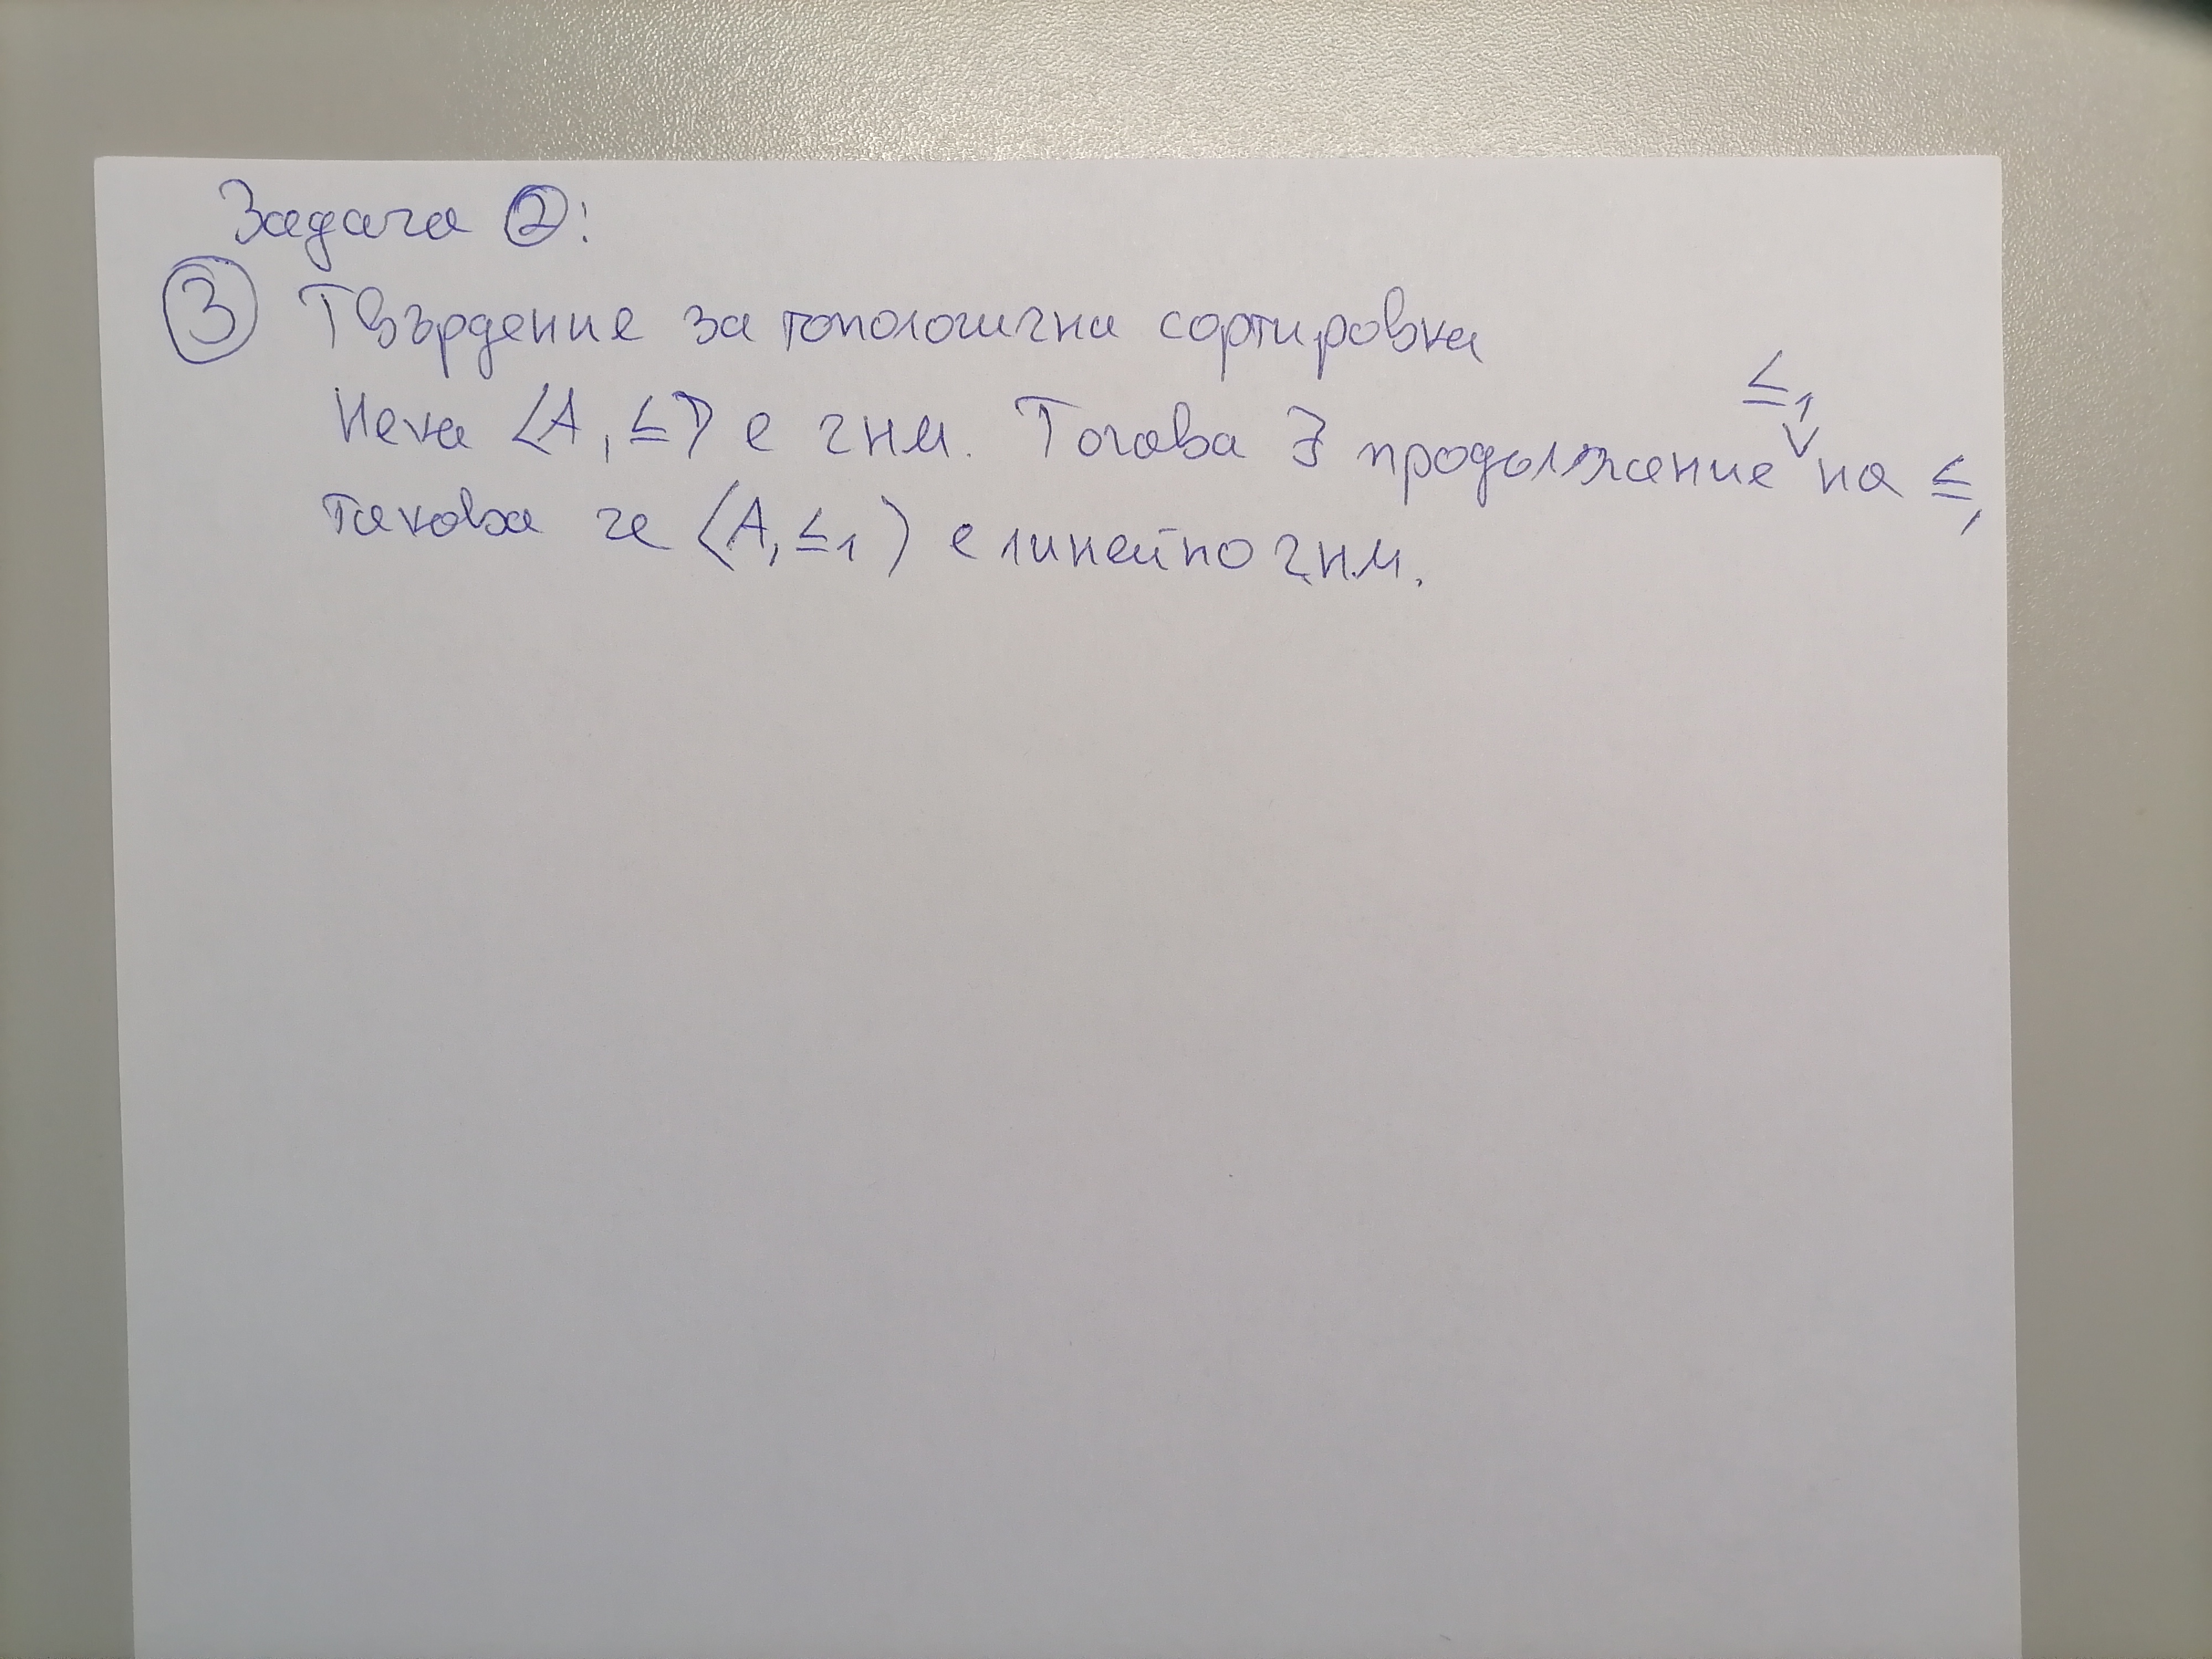 Задача ②:
③ Твърдение за топологична сортировка
Нека ⟨A, ≤⟩ е чнм. Тогава ∃ продължение ≤₁ на ≤,
такова че ⟨A, ≤₁⟩ е линейно ч.н.м.